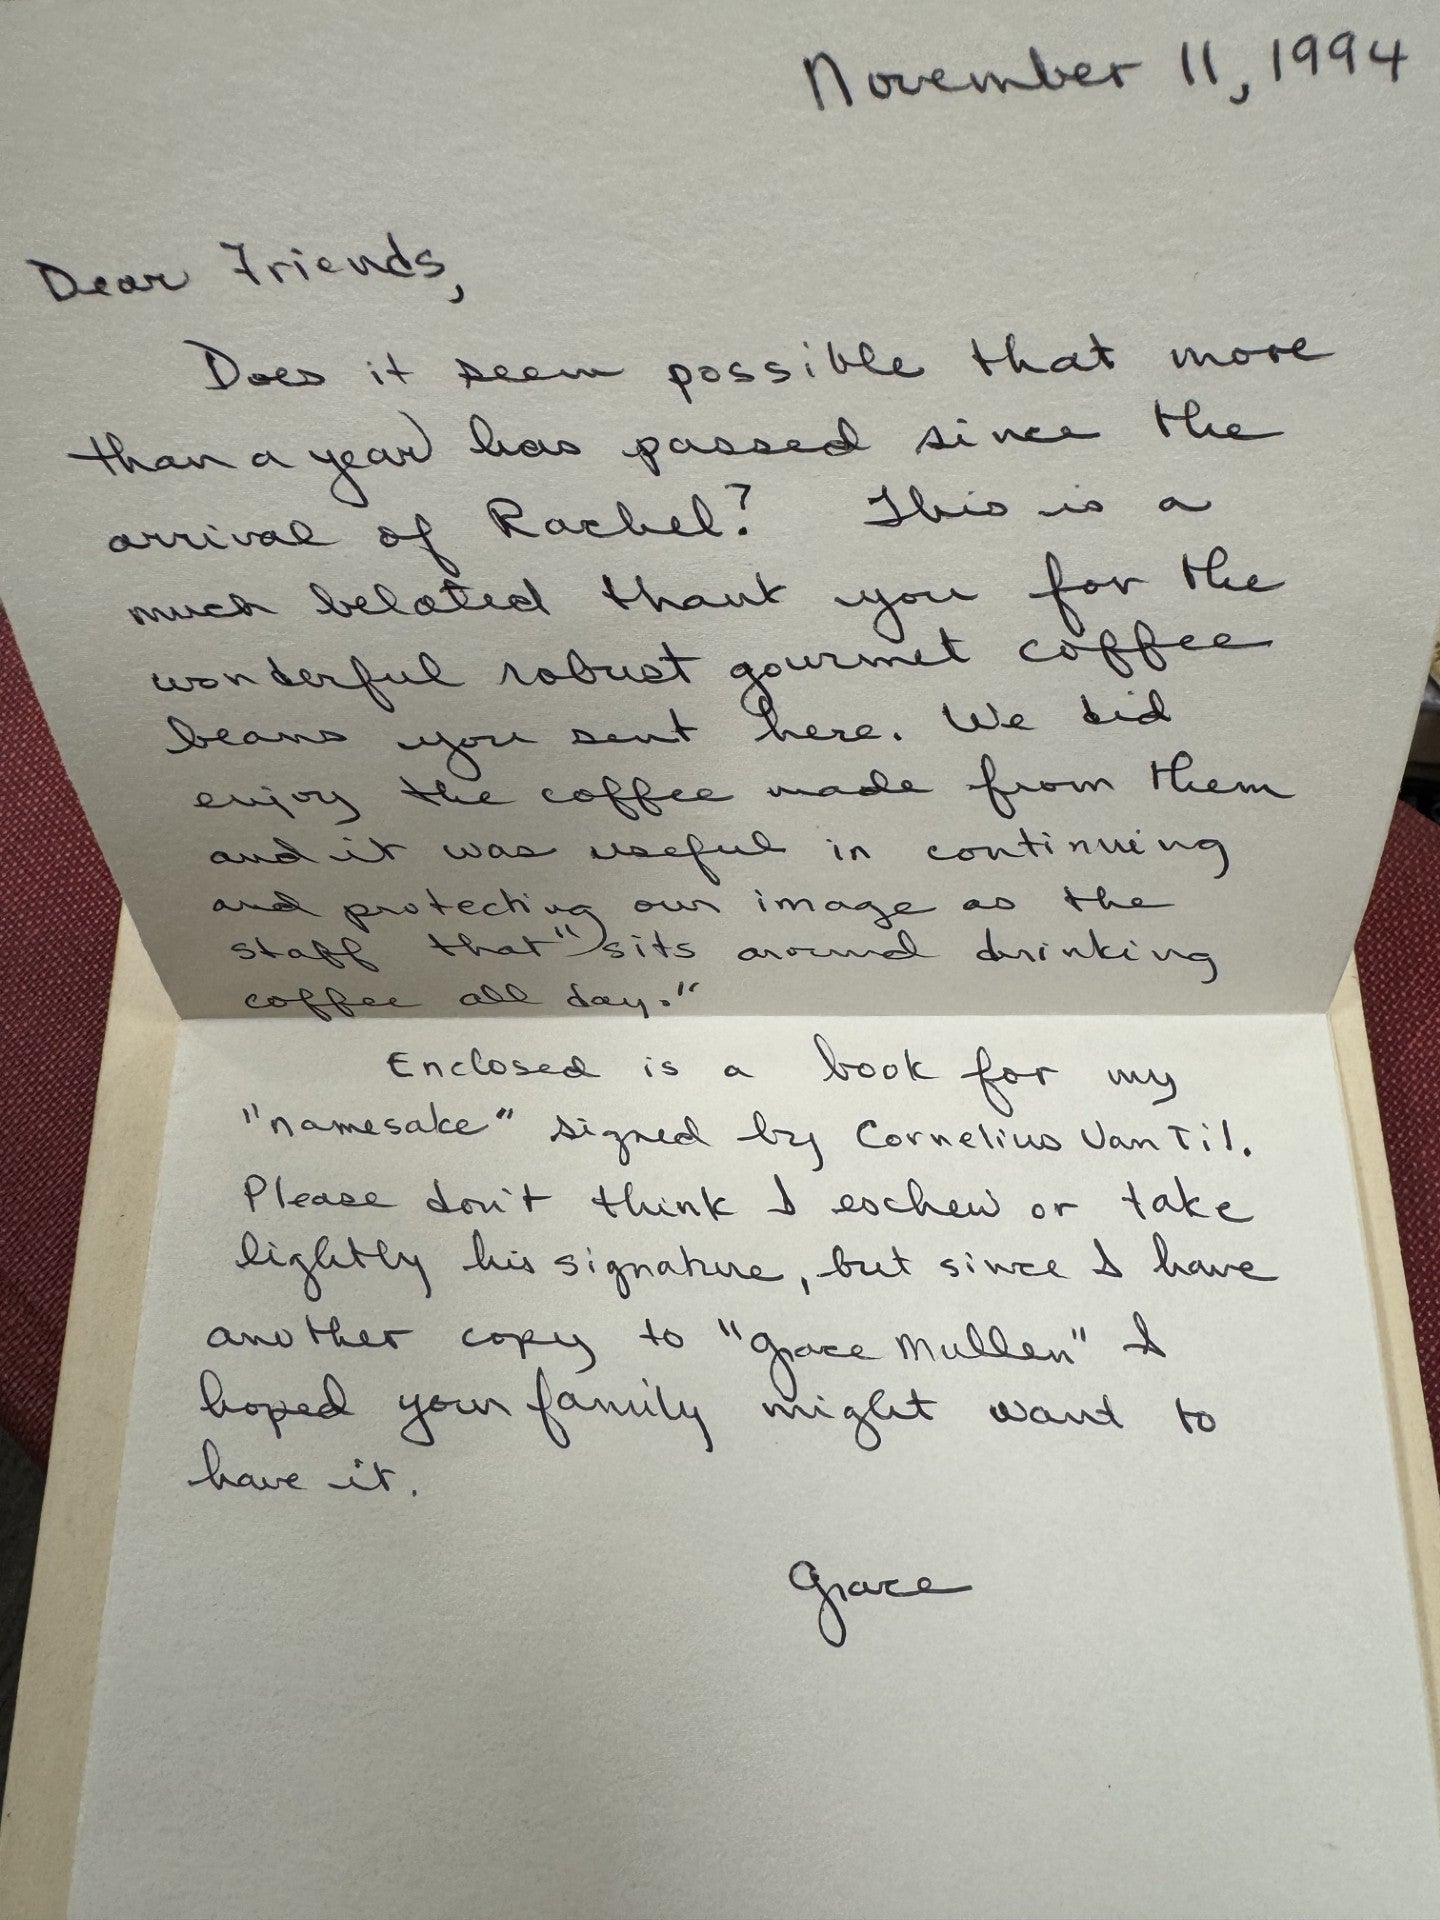 November 11, 1994
Dear Friends,
Does it seem possible that more
than a year has passed since the
arrival of Rachel? This is a
much belated thank you for the
wonderful robust gourmet coffee
beans you sent here. We did
enjoy the coffee made from them
and it was useful in continuing
and protecting our image as the
staff that "sits around drinking
coffee all day."
Enclosed is a book for my
"namesake" signed by Cornelius Van Til.
Please don't think I eschew or take
lightly his signature, but since I have
another copy to "Grace Mullen" I
hoped your family might want to
have it.
Grace